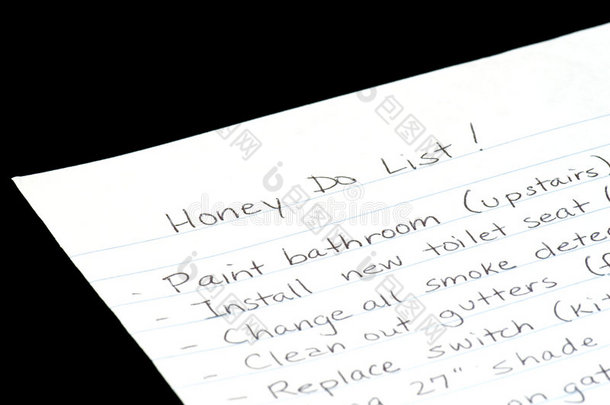 Honey Do List!
- Paint bathroom (upstairs)
- Install new toilet seat (
- Change all smoke detec
- Clean out gutters (f
- Replace switch (ki
27" shade
on gat